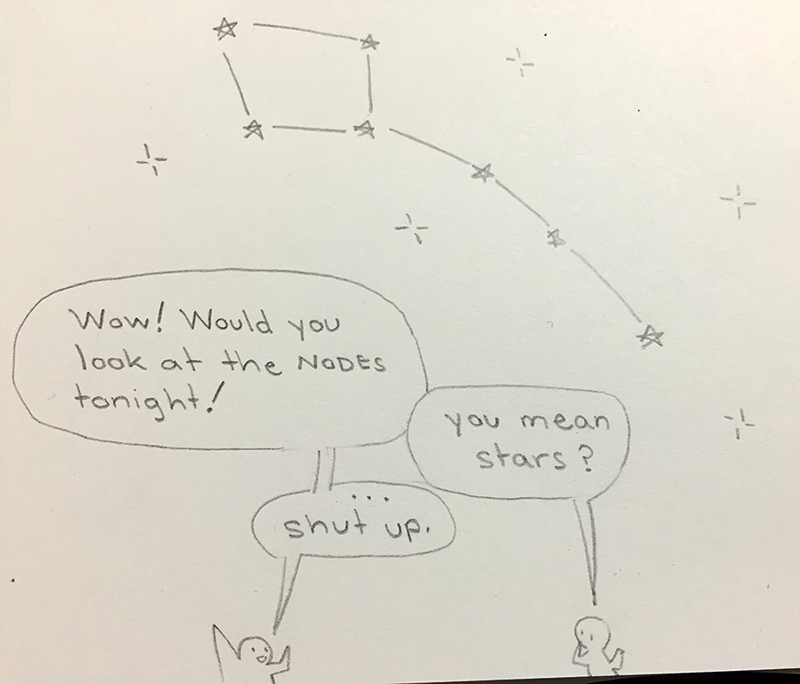 Wow! Would you
look at the NODES
tonight!
you mean
stars?
...
shut up.